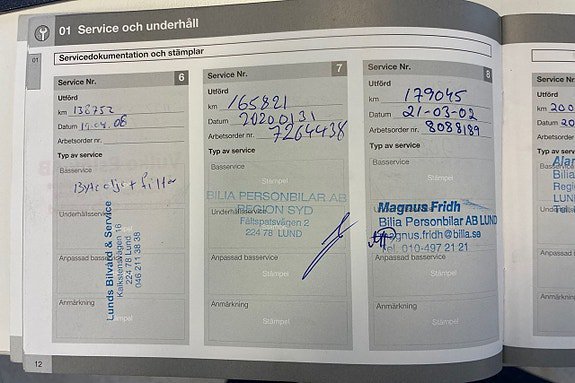 01 Service och underhåll
01
Servicedokumentation och stämplar
Service Nr. 6
Utförd
km 138752
Datum 19.04.08
Arbetsorder nr.
Typ av service
Basservice
Byte olja + filter
Underhållsservice
Lunds Bilvård & Service
Kalkstensvägen 16
224 78 Lund
046 211 38 38
Anpassad basservice
Anmärkning
Stämpel
Service Nr. 7
Utförd
km 165821
Datum 20200131
Arbetsorder nr. 7264438
Typ av service
Basservice
Stämpel
BILIA PERSONBILAR AB
REGION SYD
Underhållsservice
Fältspatsvägen 2
224 78 LUND
Anpassad basservice
Stämpel
Anmärkning
Stämpel
Service Nr. 8
Utförd
km 179045
Datum 21-03-02
Arbetsorder nr. 8088189
Typ av service
Basservice
Stämpel
Magnus Fridh
Underhållsservice
Bilia Personbilar AB LUND
magnus.fridh@bilia.se
tel. 010-497 21 21
Anpassad basservice
Stämpel
Anmärkning
Stämpel
Service
Utförd
km 200
Datum 20
Arbetsor
Typ av s
Basserv
Alan
Bilia
Regi
Underh
LUN
Tel
Anpass
Anmär
12